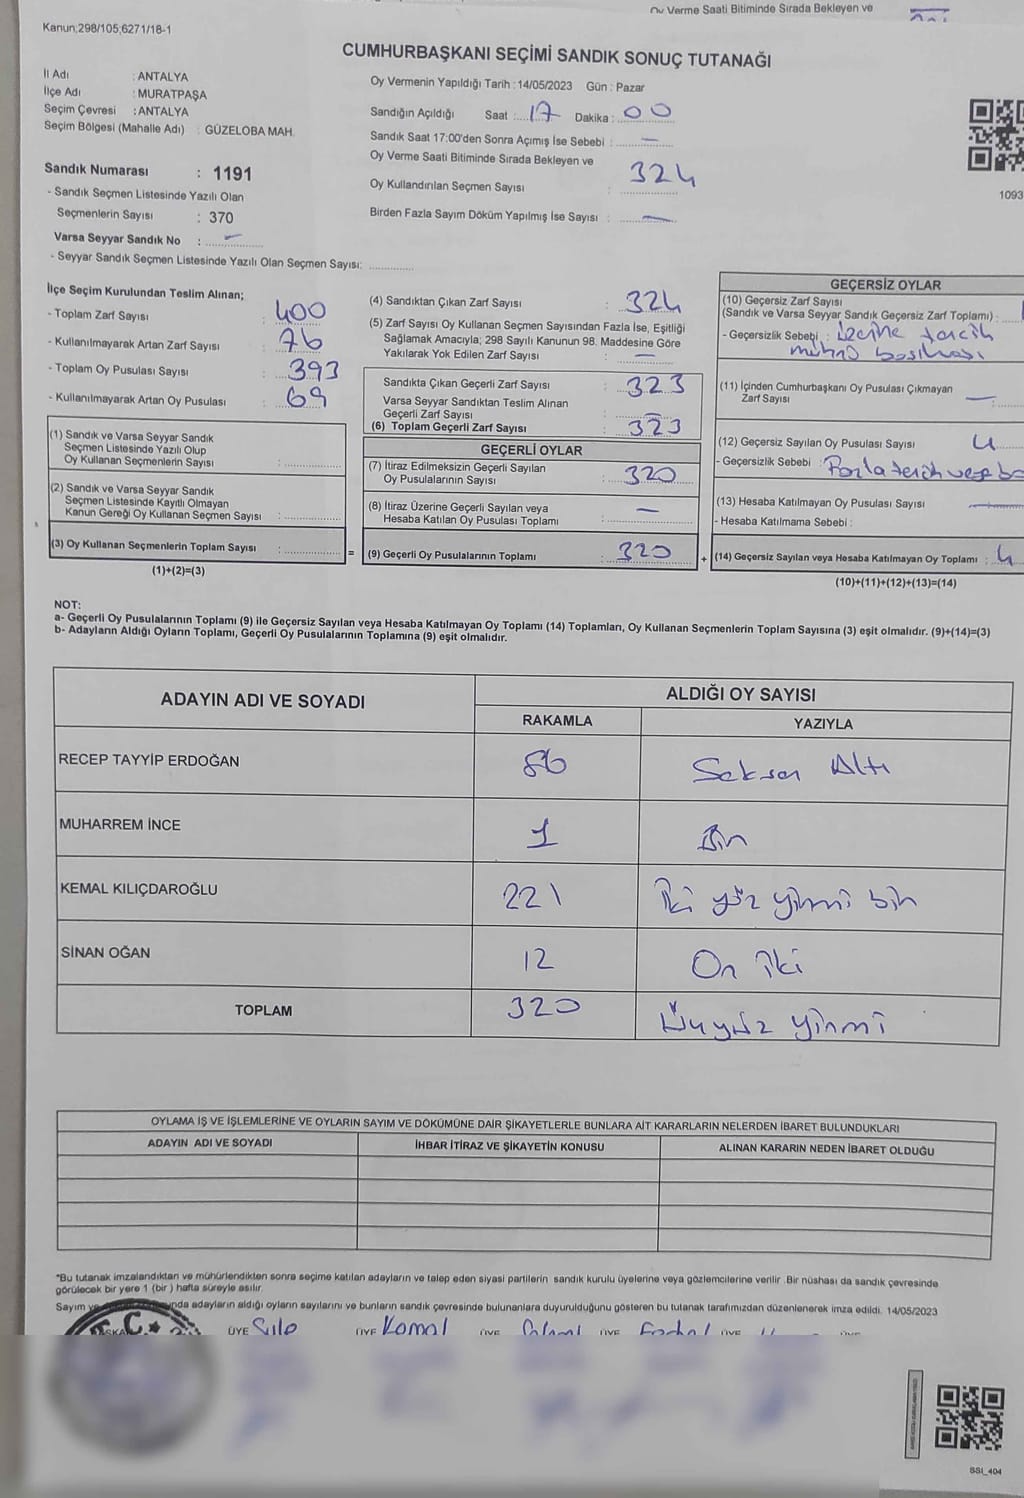 Oy Verme Saati Bitiminde Sırada Bekleyen ve
Kanun;298/105;6271/18-1
CUMHURBAŞKANI SEÇİMİ SANDIK SONUÇ TUTANAĞI
İl Adı : ANTALYA
İlçe Adı : MURATPAŞA
Seçim Çevresi : ANTALYA
Seçim Bölgesi (Mahalle Adı) : GÜZELOBA MAH.
Sandık Numarası : 1191
- Sandık Seçmen Listesinde Yazılı Olan
Seçmenlerin Sayısı : 370
Varsa Seyyar Sandık No : –
- Seyyar Sandık Seçmen Listesinde Yazılı Olan Seçmen Sayısı:
Oy Vermenin Yapıldığı Tarih : 14/05/2023 Gün : Pazar
Sandığın Açıldığı Saat : 17 Dakika : 00
Sandık Saat 17:00'den Sonra Açımış İse Sebebi : –
Oy Verme Saati Bitiminde Sırada Bekleyen ve
Oy Kullandırılan Seçmen Sayısı : 324
Birden Fazla Sayım Döküm Yapılmış İse Sayısı : –
1093
İlçe Seçim Kurulundan Teslim Alınan;
- Toplam Zarf Sayısı : 400
- Kullanılmayarak Artan Zarf Sayısı : 76
- Toplam Oy Pusulası Sayısı : 393
- Kullanılmayarak Artan Oy Pusulası : 69
(1) Sandık ve Varsa Seyyar Sandık
Seçmen Listesinde Yazılı Olup
Oy Kullanan Seçmenlerin Sayısı :
(2) Sandık ve Varsa Seyyar Sandık
Seçmen Listesinde Kayıtlı Olmayan
Kanun Gereği Oy Kullanan Seçmen Sayısı :
(3) Oy Kullanan Seçmenlerin Toplam Sayısı : =
(1)+(2)=(3)
(4) Sandıktan Çıkan Zarf Sayısı : 324
(5) Zarf Sayısı Oy Kullanan Seçmen Sayısından Fazla İse, Eşitliği
Sağlamak Amacıyla; 298 Sayılı Kanunun 98. Maddesine Göre
Yakılarak Yok Edilen Zarf Sayısı : –
Sandıkta Çıkan Geçerli Zarf Sayısı : 323
Varsa Seyyar Sandıktan Teslim Alınan
Geçerli Zarf Sayısı : –
(6) Toplam Geçerli Zarf Sayısı : 323
GEÇERLİ OYLAR
(7) İtiraz Edilmeksizin Geçerli Sayılan
Oy Pusulalarının Sayısı : 320
(8) İtiraz Üzerine Geçerli Sayılan veya
Hesaba Katılan Oy Pusulası Toplamı : –
(9) Geçerli Oy Pusulalarının Toplamı : 320 +
GEÇERSİZ OYLAR
(10) Geçersiz Zarf Sayısı
(Sandık ve Varsa Seyyar Sandık Geçersiz Zarf Toplamı) :
- Geçersizlik Sebebi : Üzerine tercih
mührü basılması
(11) İçinden Cumhurbaşkanı Oy Pusulası Çıkmayan
Zarf Sayısı : –
(12) Geçersiz Sayılan Oy Pusulası Sayısı 4
- Geçersizlik Sebebi : Fazla tercih
(13) Hesaba Katılmayan Oy Pusulası Sayısı –
- Hesaba Katılmama Sebebi :
(14) Geçersiz Sayılan veya Hesaba Katılmayan Oy Toplamı : 4
(10)+(11)+(12)+(13)=(14)
NOT:
a- Geçerli Oy Pusulalarının Toplamı (9) ile Geçersiz Sayılan veya Hesaba Katılmayan Oy Toplamı (14) Toplamları, Oy Kullanan Seçmenlerin Toplam Sayısına (3) eşit olmalıdır. (9)+(14)=(3)
b- Adayların Aldığı Oyların Toplamı, Geçerli Oy Pusulalarının Toplamına (9) eşit olmalıdır.
ADAYIN ADI VE SOYADI ALDIĞI OY SAYISI
RAKAMLA YAZIYLA
RECEP TAYYİP ERDOĞAN 86 Seksen Altı
MUHARREM İNCE 1 Bir
KEMAL KILIÇDAROĞLU 221 İki yüz yirmi bir
SİNAN OĞAN 12 On iki
TOPLAM 320 Üçyüz yirmi
OYLAMA İŞ VE İŞLEMLERİNE VE OYLARIN SAYIM VE DÖKÜMÜNE DAİR ŞİKAYETLERLE BUNLARA AİT KARARLARIN NELERDEN İBARET BULUNDUKLARI
ADAYIN ADI VE SOYADI İHBAR İTİRAZ VE ŞİKAYETİN KONUSU ALINAN KARARIN NEDEN İBARET OLDUĞU
*Bu tutanak imzalandıktan ve mühürlendikten sonra seçime katılan adayların ve talep eden siyasi partilerin sandık kurulu üyelerine veya gözlemcilerine verilir .Bir nüshası da sandık çevresinde
görülecek bir yere 1 (bir ) hafta süreyle asılır.
Sayım ve adayların aldığı oyların sayılarını ve bunların sandık çevresinde bulunanlara duyurulduğunu gösteren bu tutanak tarafımızdan düzenlenerek imza edildi. 14/05/2023
T.C. ÜYE ÜYE Kemal ÜYE ÜYE ÜYE ÜYE
BSI_404